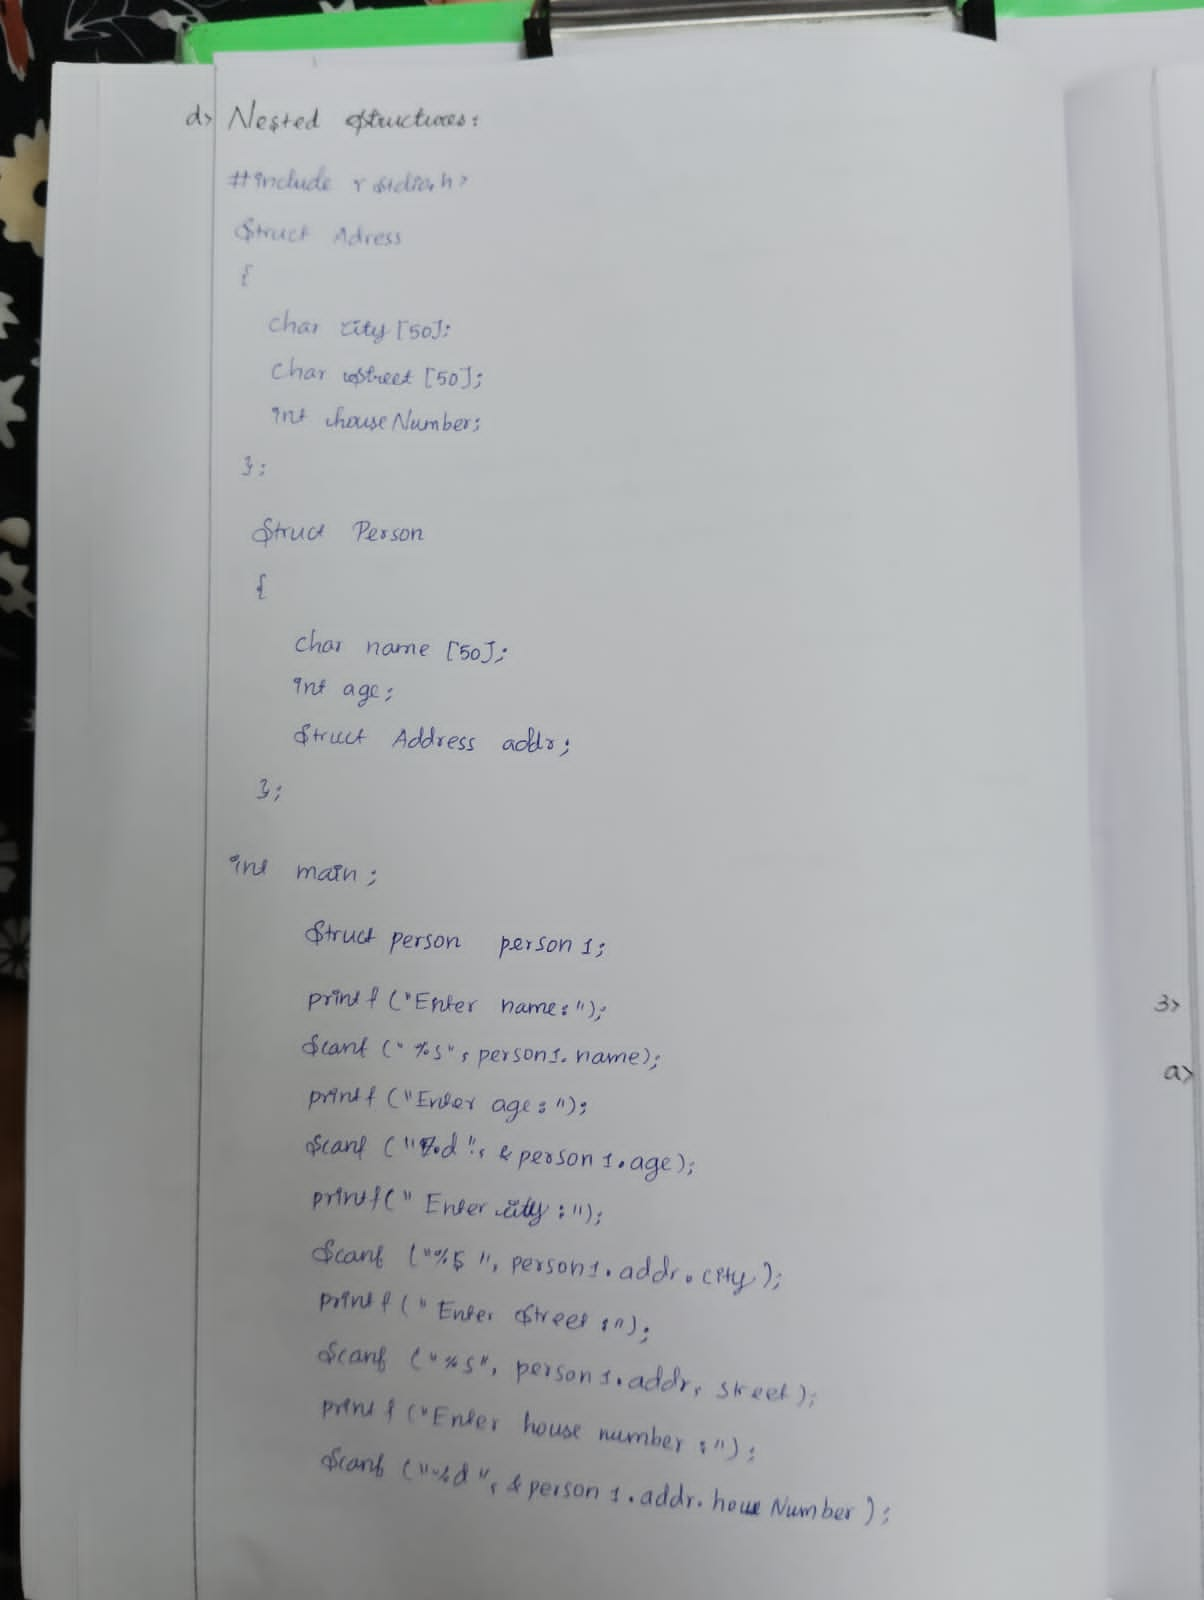 d> Nested structures:
#include <stdio.h>
Struct Adress
{
char city [50];
char street [50];
int houseNumber;
};
Struct Person
{
char name [50];
int age;
Struct Address addr;
};
int main;
Struct person person1;
printf ("Enter name:");
Scanf ("%s", person1.name);
printf ("Enter age:");
Scanf ("%d", &person1.age);
printf(" Enter city :");
Scanf ("%s", person1.addr.city);
printf (" Enter Street :");
Scanf ("%s", person1.addr, street);
printf ("Enter house number :");
Scanf ("%d", &person1.addr.houseNumber);
3>
a>